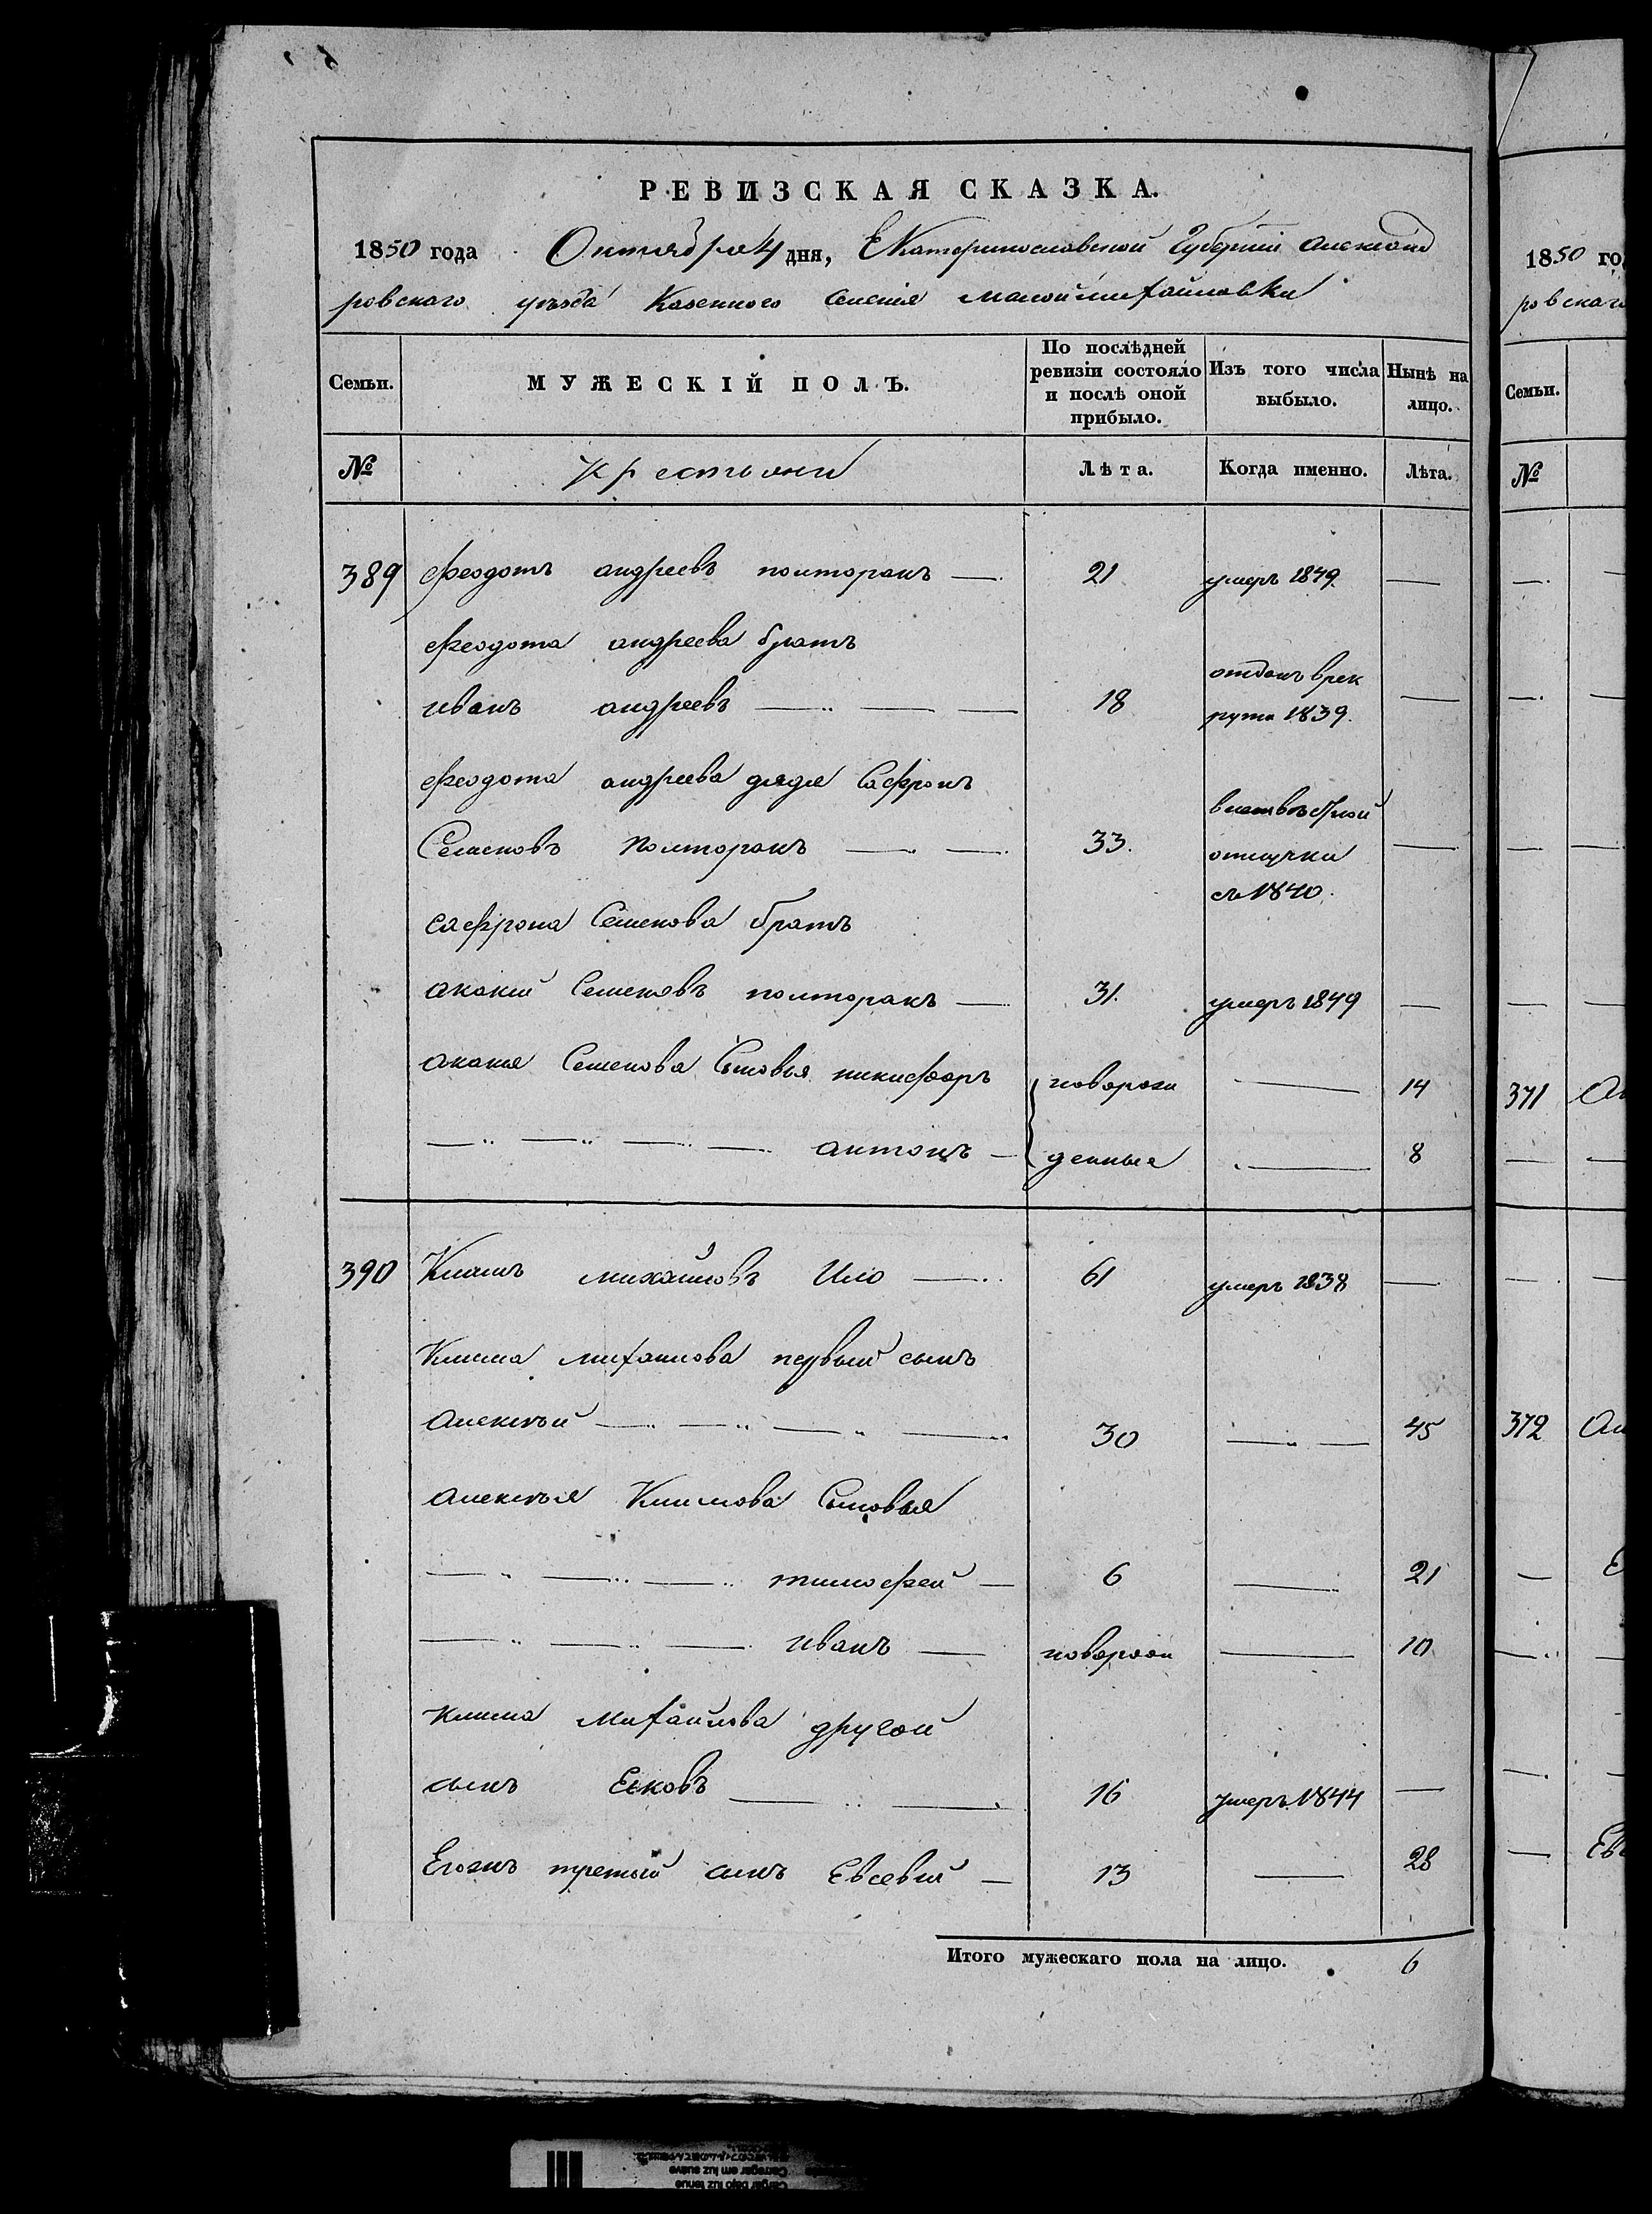 РЕВИЗСКАЯ СКАЗКА.
1850 года Октября 4 дня, Екатеринославской Губерніи Александ
ровскаго уѣзда Казенного Селенія Малоймихайловки
Семьи.
МУЖЕСКІЙ ПОЛЪ.
По послѣдней ревизіи состояло и послѣ оной прибыло.
Изъ того числа выбыло.
Нынѣ на лицо.
№
Крестьяни
Лѣта.
Когда именно.
Лѣта.
389 Феодотъ андреевъ полторакъ 21 умеръ 1849
Феодота андреева братъ
иванъ андреевъ 18 отданъ врек
рута 1839.
Феодота андреева дядя Сафронъ
Семеновъ Полторакъ 33. отлучки
съ 1840.
сафрона Семенова братъ
акакій Семеновъ полторакъ 31. умеръ 1849
акакія Семенова Сыновья никифоръ новорож 14
антонъ денные 8
390 Климъ михайловъ Ило 61 умеръ 1838
Клима михайлова первый сынъ
алексѣй 30 45
алексѣя Климова Сыновья
тимофей 6 21
иванъ новорож 10
клима Михайлова другой
сынъ Еяковъ 16 умеръ 1844
Егожъ третій сынъ Евсевій 13 28
Итого мужескаго пола на лицо. 6
1850 го
ровскаго
Семьи.
№
371
372